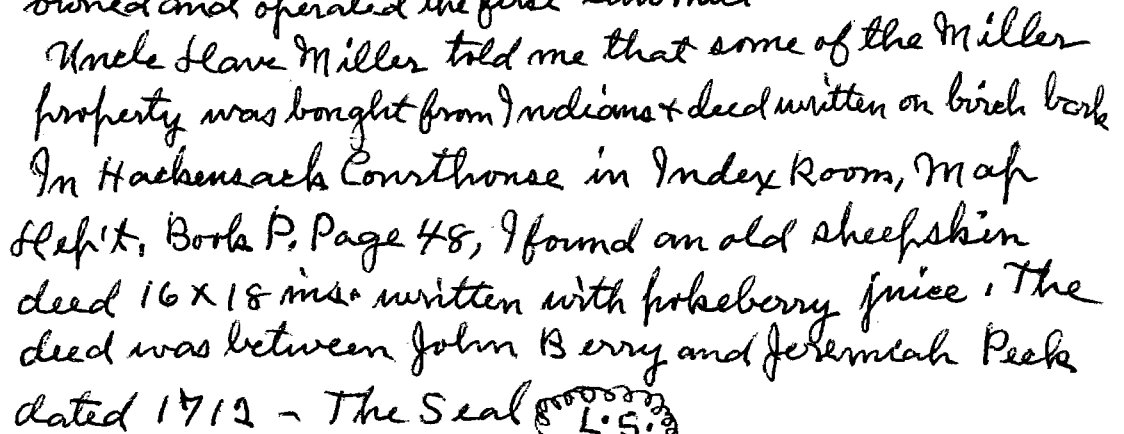 owned and operated the first
Uncle Dave Miller told me that some of the Miller
property was bought from Indians + deed written on birch bark
In Hackensack Courthouse in Index Room, Map
Dep't, Book P. Page 48, I found an old sheepskin
deed 16 X 18 ins. written with pokeberry juice. The
deed was between John Berry and Jeremiah Peek
dated 1712 - The Seal L.S.